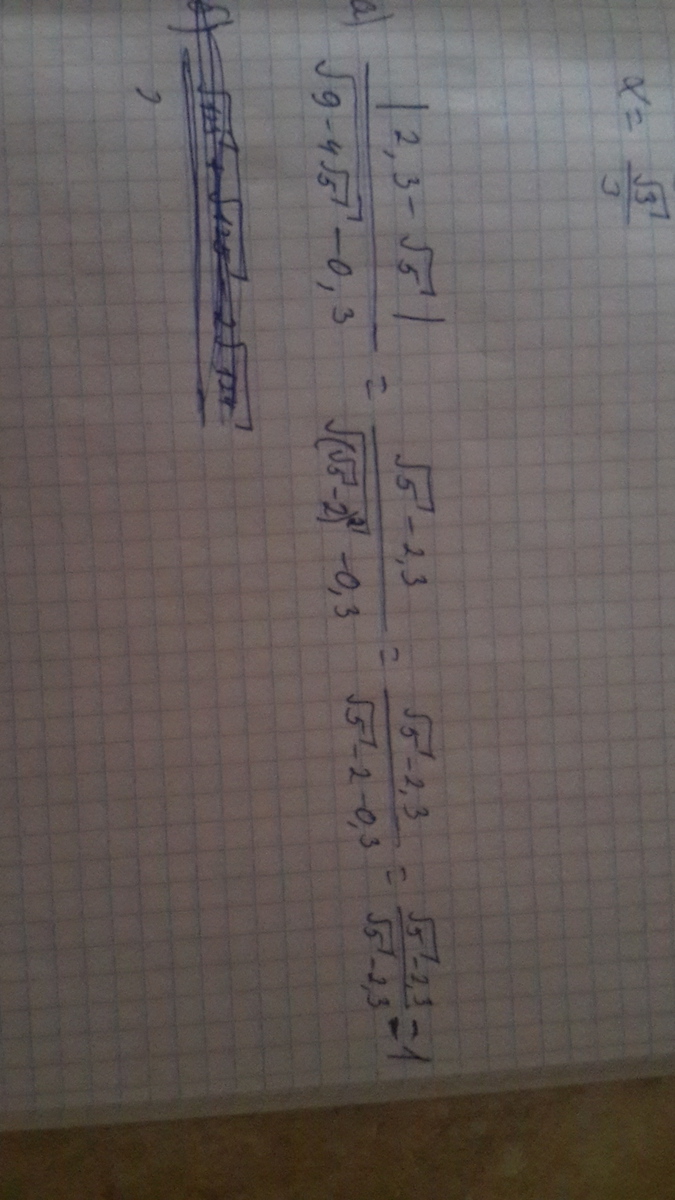 x = √3/3
а) |2,3 - √5| / (√(9 - 4√5) - 0,3) = (√5 - 2,3) / (√((√5 - 2)²) - 0,3) = (√5 - 2,3) / (√5 - 2 - 0,3) = (√5 - 2,3) / (√5 - 2,3) = 1
б)